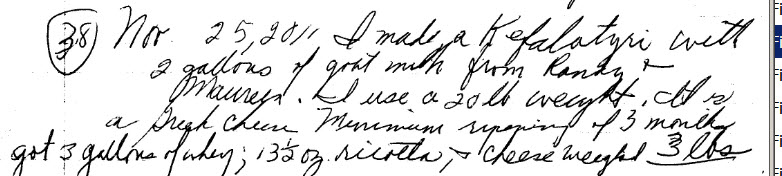 38 Nov 25, 2011 I made a Kefalotyri with
2 gallons of goat milk from Randy +
Maureen. I use a 20 lb weight. It is
a Greek Cheese Minimum ripening of 3 months
got 3 gallons of whey; 13½ oz. ricotta, + cheese weighed 3 lbs